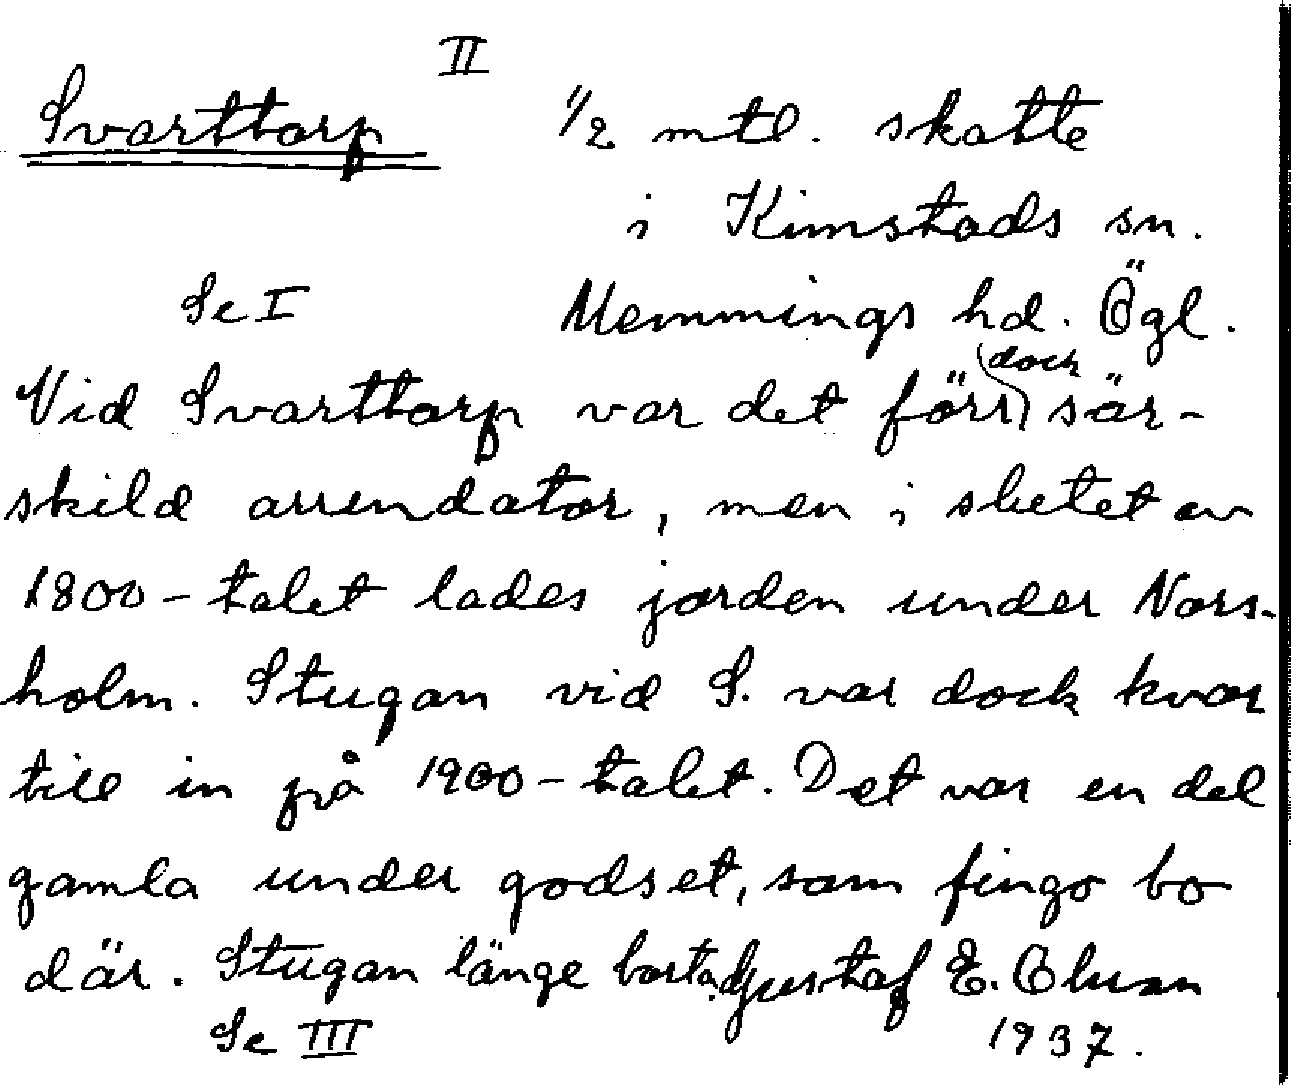 II
Svarttorp 1/2 mtl. skatte
i Kimstads sn.
Se I Memmings hd. Ögl.
Vid Svarttorp var det förr dock sär-
skild arrendator, men i slutet av
1800-talet lades jorden under Nors-
holm. Stugan vid S. var dock kvar
till in på 1900-talet. Det var en del
gamla under godset, som fingo bo
där. Stugan länge borta. Gustaf E. Olsson
Se III 1937.